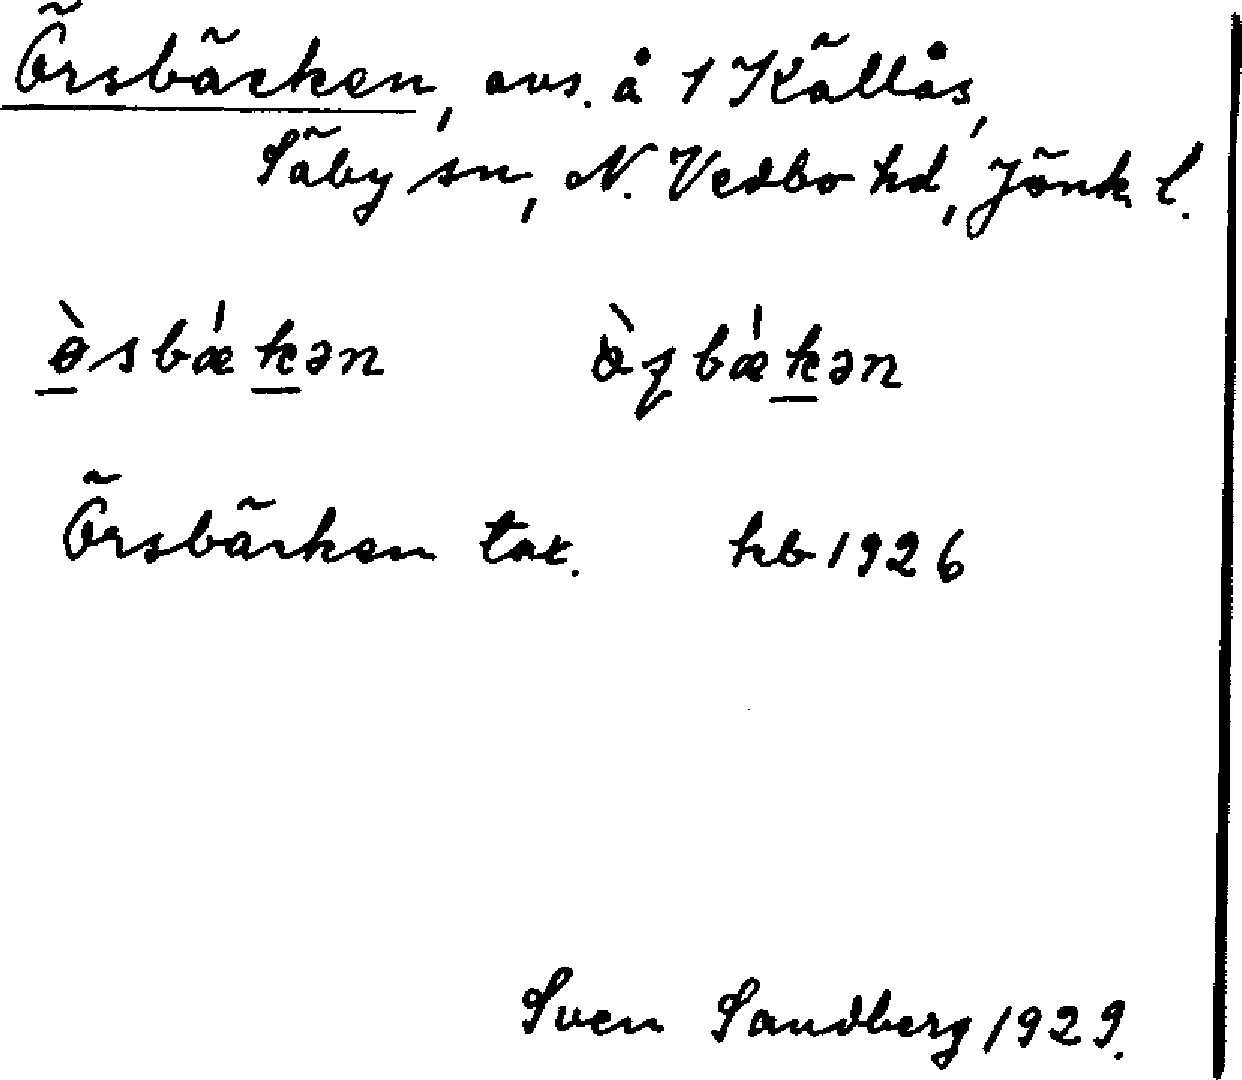 Örsbäcken, avs. å 1 Källås,
Säby sn, N. Vedbo hd, Jönk l.
ɵ̀sbǽkən ɵ̀ʂbǽkən
Örsbäcken tax. hb 1926
Sven Sandberg 1929.